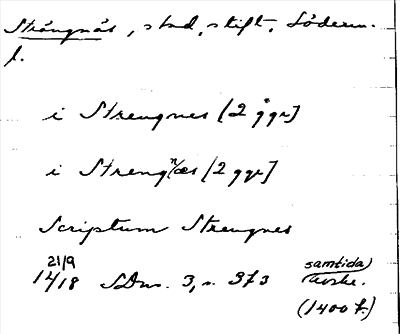 Strängnäs, stad, stift, Söderm.
l.
i Strengnes (2 ggr)
i Strengnæs (2 ggr)
Scriptum Strengnes
21/9
14/18 SDns. 3, s. 373 samtida
avskr.
(1400 t.)